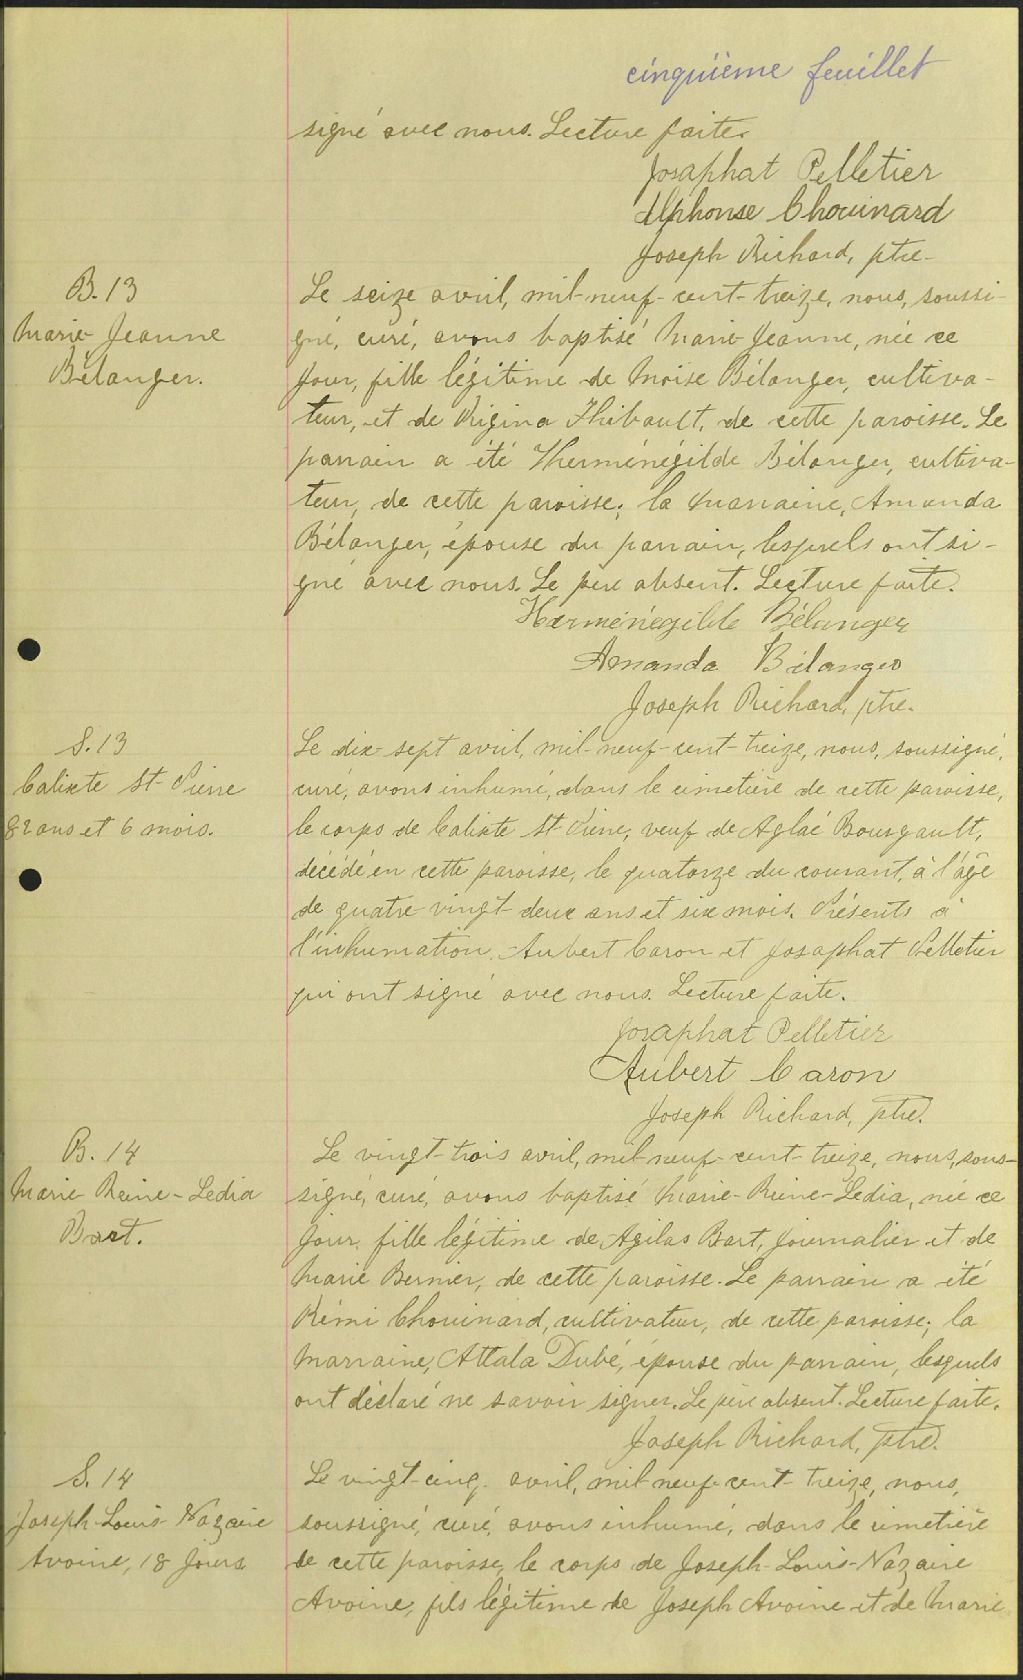 cinquième feuillet
signé avec nous. Lecture faite.
Josaphat Pelletier
Alphonse Chouinard
Joseph Richard, ptre.
B. 13
Marie-Jeanne
Bélanger.
Le seize avril, mil-neuf-cent-treize, nous, soussi-
gné, curé, avons baptisé Marie-Jeanne, née ce
jour, fille légitime de Moïse Bélanger, cultiva-
teur, et de Régina Thibault, de cette paroisse. Le
parrain a été Therménégilde Bélanger, cultiva-
teur, de cette paroisse; la marraine, Amanda
Bélanger, épouse du parrain, lesquels ont si-
gné avec nous. Le père absent. Lecture faite.
Herménégilde Bélanger
Amanda Bélanger
Joseph Richard, ptre.
S. 13
Calixte St-Pierre
82 ans et 6 mois.
Le dix-sept avril, mil-neuf-cent-treize, nous, soussigné,
curé, avons inhumé, dans le cimetière de cette paroisse,
le corps de Calixte St-Pierre, veuf de Aglaé Bourgault,
décédé en cette paroisse, le quatorze du courant, à l'âge
de quatre-vingt-deux ans et six mois. Présents à
l'inhumation, Aubert Caron et Josaphat Pelletier
qui ont signé avec nous. Lecture faite.
Josaphat Pelletier
Aubert Caron
Joseph Richard, ptre.
B. 14
Marie-Reine-Ledia
Bart.
Le vingt-trois avril, mil-neuf-cent-treize, nous, sous-
signé, curé, avons baptisé Marie-Reine-Ledia, née ce
jour, fille légitime de Agilas Bart, journalier et de
Marie Bernier, de cette paroisse. Le parrain a été
Rémi Chouinard, cultivateur, de cette paroisse; la
marraine, Attala Dubé, épouse du parrain, lesquels
ont déclaré ne savoir signer. Le père absent. Lecture faite.
Joseph Richard, ptre.
S. 14
Joseph-Louis-Nazaire
Avoine, 18 jours.
Le vingt-cinq avril, mil-neuf-cent-treize, nous,
soussigné, curé, avons inhumé, dans le cimetière
de cette paroisse, le corps de Joseph-Louis-Nazaire
Avoine, fils légitime de Joseph Avoine et de Marie